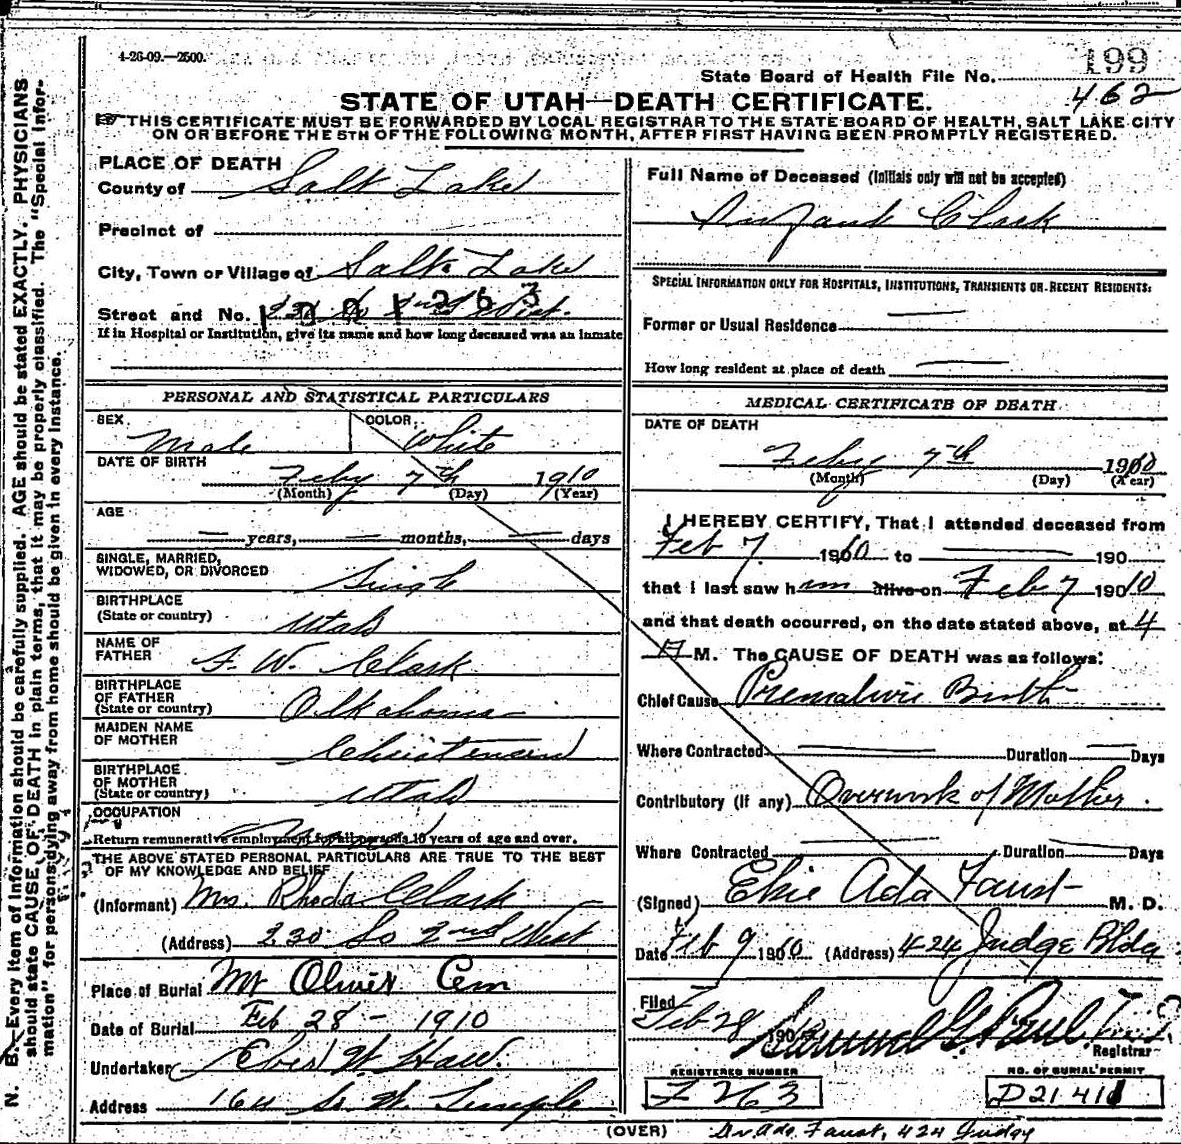 4-26-09.—2500.
199
State Board of Health File No.
462
STATE OF UTAH—DEATH CERTIFICATE.
THIS CERTIFICATE MUST BE FORWARDED BY LOCAL REGISTRAR TO THE STATE BOARD OF HEALTH, SALT LAKE CITY
ON OR BEFORE THE 5TH OF THE FOLLOWING MONTH, AFTER FIRST HAVING BEEN PROMPTLY REGISTERED.
PLACE OF DEATH
County of Salt Lake
Precinct of
City, Town or Village of Salt Lake
Street and No. 230 So 2nd West.
If in Hospital or Institution, give its name and how long deceased was an inmate
Full Name of Deceased (Initials only will not be accepted)
Infant Clark
SPECIAL INFORMATION ONLY FOR HOSPITALS, INSTITUTIONS, TRANSIENTS OR RECENT RESIDENTS:
Former or Usual Residence —
How long resident at place of death —
PERSONAL AND STATISTICAL PARTICULARS
SEX Male COLOR White
DATE OF BIRTH Feby 7th 1910
(Month) (Day) (Year)
AGE
— years, — months, — days
SINGLE, MARRIED, WIDOWED, OR DIVORCED Single
BIRTHPLACE (State or country) Utah
NAME OF FATHER F. W. Clark
BIRTHPLACE OF FATHER (State or country) Olkahoma
MAIDEN NAME OF MOTHER Christensen
BIRTHPLACE OF MOTHER (State or country) Utah
OCCUPATION
Return remunerative employment for all persons 10 years of age and over.
THE ABOVE STATED PERSONAL PARTICULARS ARE TRUE TO THE BEST
OF MY KNOWLEDGE AND BELIEF
(Informant) Mrs. Rhoda Clark
(Address) 230 So 2nd West
Place of Burial Mt Olivet Cem
Date of Burial Feb 28 - 1910
Undertaker Eber W Hall.
Address 164 So. W. Temple
MEDICAL CERTIFICATE OF DEATH
DATE OF DEATH
Feby 7th 1910
(Month) (Day) (Year)
I HEREBY CERTIFY, That I attended deceased from
Feb 7 1910 to — 190
that I last saw him alive on Feb 7 1910
and that death occurred, on the date stated above, at 4
A M. The CAUSE OF DEATH was as follows:
Chief Cause Premature Birth
Where Contracted — Duration — Days
Contributory (if any) Overwork of Mother.
Where Contracted — Duration — Days
(Signed) Elsie Ada Faust M. D.
Date Feb 9 1910 (Address) 424 Judge Bldg
Filed Feb 28 190
Samuel G. Paul
Registrar
REGISTERED NUMBER
F 263
NO. OF BURIAL PERMIT
D 21411
(OVER) Dr. Ada Faust, 424 Judge
N. B.—Every item of information should be carefully supplied. AGE should be stated EXACTLY. PHYSICIANS
should state CAUSE OF DEATH in plain terms, that it may be properly classified. The "Special Infor-
mation" for persons dying away from home should be given in every instance.